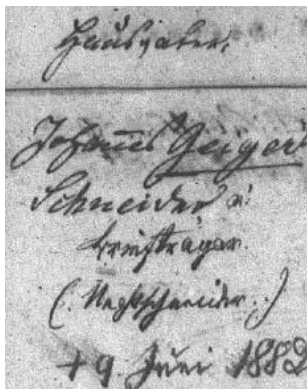 Hausvater.
Johannes Geiger
Schneider u.
Briefträger.
(Nachtschneider.)
† 9. Juni 1882